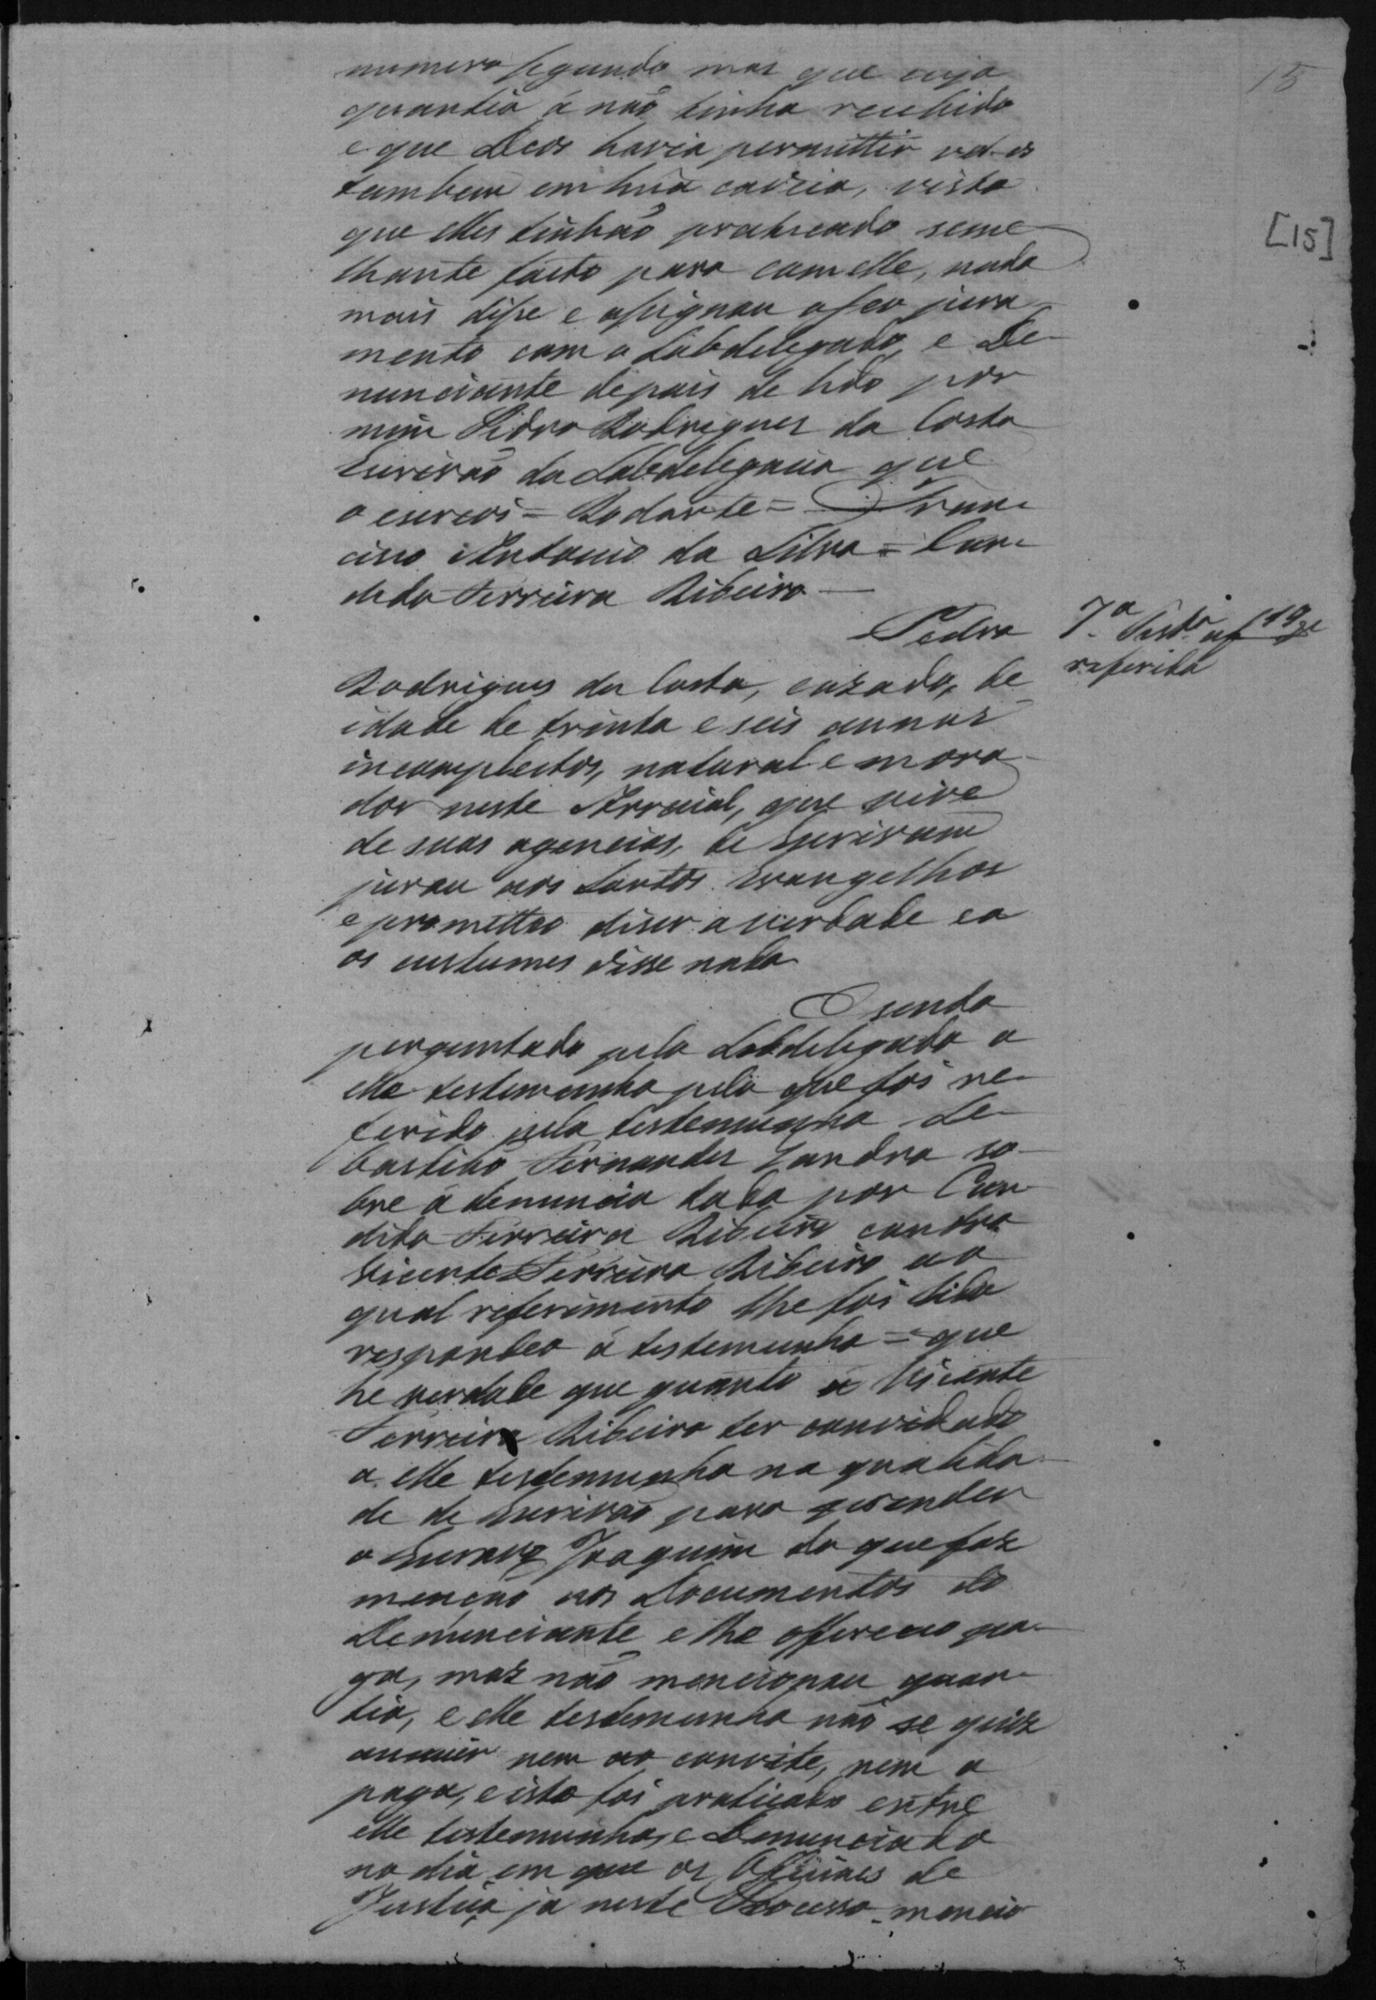 15
[15]
numero segundo mas que cuja
quantia a não tinha recebido
e que Deos havia permittir vel-os
tambem em hũa cadeia, visto
que elles tinhão praticado seme
lhante facto para com elle, nada
mais disse e assignou o seu jura-
mento com o Subdelegado, e De-
nunciante depois de lido por
mim Pedro Rodrigues da Costa
Escrivão da Subdelegacia que
o escrevi = Rodarte = Fran-
cisco Antonio da Silva = Can-
dido Ferreira Ribeiro —
Pedro
7.ª Testa
referida
Rodrigues da Costa, cazado, de
idade de trinta e seis annos
incompletos, natural e mora-
dor neste Arraial, que vive
de suas agencias, de Escrivam
jurou aos Santos Evangelhos
e prometteo diser a verdade e a
os custumes disse nada
E sendo
perguntado pelo Subdelegado a
elle testemunha pelo que foi re-
ferido pela testemunha Se-
bastião Fernandes Landra so-
bre a denuncia dada por Can-
dido Ferreira Ribeiro contra
Vicente Ferreira Ribeiro ao
qual referimento lhe foi lido
respondeo a testemunha = que
he verdade que quanto a Vicente
Ferreira Ribeiro ter convidado
a elle testemunha na qualida-
de de Escrivão para prender
o Joaquim do que faz
menção nos Documentos do
Denunciante e lhe offereceo pa-
ga, mas não mencionou quan-
tia, e elle testemunha não se quis
annuir nem ao convite, nem a
paga, e isto foi praticado entre
elle testemunha, e Denunciado
no dia em que os Officiaes de
Justiça ja neste Processo mencio